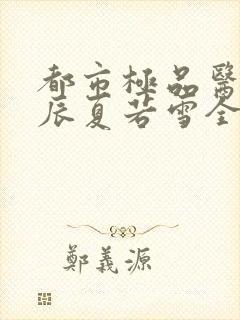 都市極品醫
辰夏若雪全
鄭義源